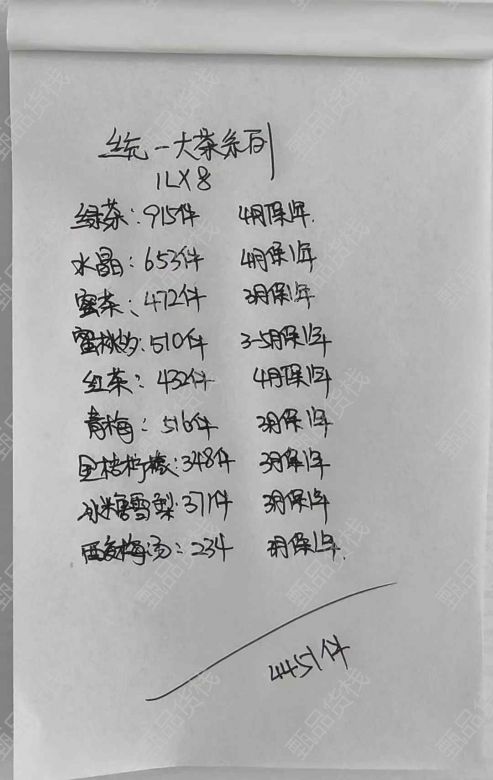 统一大茶系列
1LX8
绿茶:915件 4月保1年.
水晶:653件 4月保1年
蜜茶、472件 3月保1年
蜜桃乌:510件 3-5月保1年
红茶:432件 4月保1年
青梅:516件 3月保1年
金桔柠檬:348件 3月保1年
冰糖雪梨:371件 3月保1年
酸梅汤:234 3月保1年.
4451件
甄品货栈